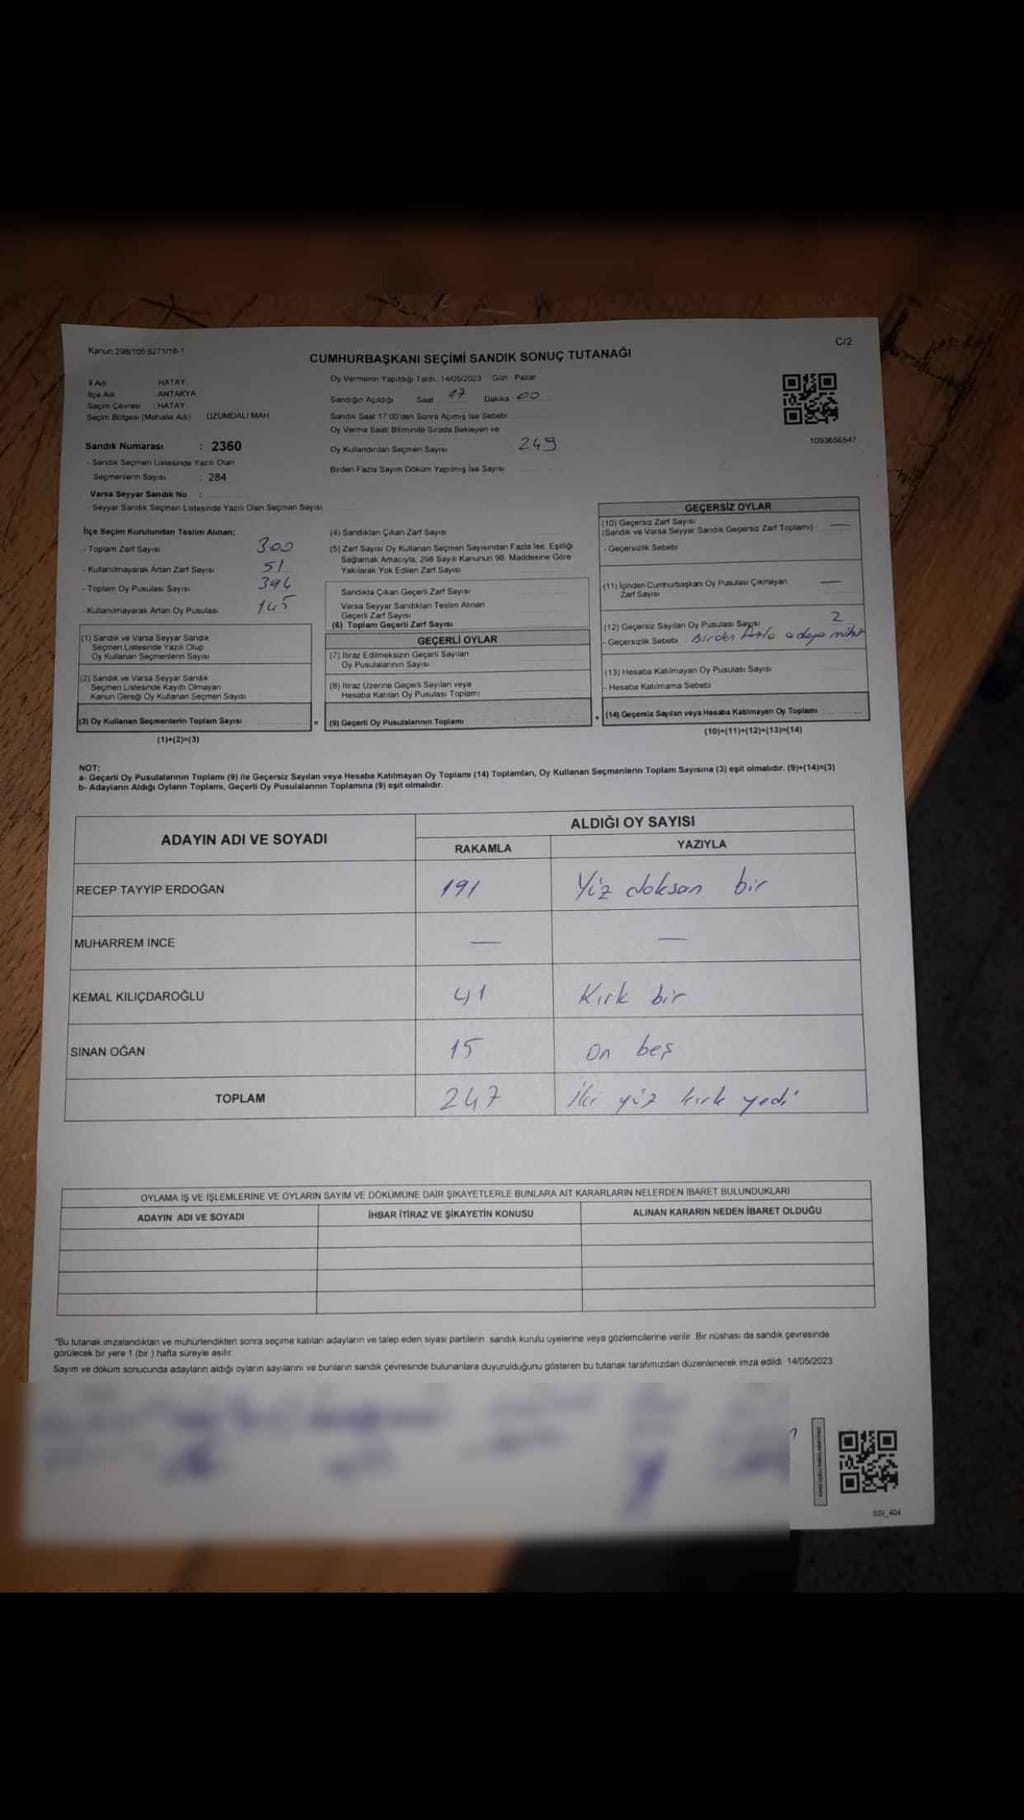 Kanun:298/105 6271/18-1
C/2
CUMHURBAŞKANI SEÇİMİ SANDIK SONUÇ TUTANAĞI
İl Adı : HATAY
İlçe Adı : ANTAKYA
Seçim Çevresi : HATAY
Seçim Bölgesi (Mahalle Adı) : ÜZÜMDALI MAH
Sandık Numarası : 2360
- Sandık Seçmen Listesinde Yazılı Olan
Seçmenlerin Sayısı : 284
Varsa Seyyar Sandık No :
- Seyyar Sandık Seçmen Listesinde Yazılı Olan Seçmen Sayısı
Oy Vermenin Yapıldığı Tarih : 14/05/2023 Gün : Pazar
Sandığın Açıldığı Saat 17 Dakika 00
Sandık Saat 17:00'den Sonra Açılmış İse Sebebi
Oy Verme Saati Bitiminde Sırada Bekleyen ve
Oy Kullandırılan Seçmen Sayısı 249
Birden Fazla Sayım Döküm Yapılmış İse Sayısı
1093656647
İlçe Seçim Kurulundan Teslim Alınan;
- Toplam Zarf Sayısı 300
- Kullanılmayarak Artan Zarf Sayısı 51
- Toplam Oy Pusulası Sayısı
- Kullanılmayarak Artan Oy Pusulası 145
(1) Sandık ve Varsa Seyyar Sandık
Seçmen Listesinde Yazılı Olup
Oy Kullanan Seçmenlerin Sayısı
(2) Sandık ve Varsa Seyyar Sandık
Seçmen Listesinde Kayıtlı Olmayan
Kanun Gereği Oy Kullanan Seçmen Sayısı
(3) Oy Kullanan Seçmenlerin Toplam Sayısı
(1)+(2)=(3)
=
(4) Sandıktan Çıkan Zarf Sayısı
(5) Zarf Sayısı Oy Kullanan Seçmen Sayısından Fazla İse, Eşitliği
Sağlamak Amacıyla, 298 Sayılı Kanunun 98. Maddesine Göre
Yakılarak Yok Edilen Zarf Sayısı
Sandıkta Çıkan Geçerli Zarf Sayısı
Varsa Seyyar Sandıktan Teslim Alınan
Geçerli Zarf Sayısı
(6) Toplam Geçerli Zarf Sayısı
GEÇERLİ OYLAR
(7) İtiraz Edilmeksizin Geçerli Sayılan
Oy Pusulalarının Sayısı
(8) İtiraz Üzerine Geçerli Sayılan veya
Hesaba Katılan Oy Pusulası Toplamı
(9) Geçerli Oy Pusulalarının Toplamı
+
GEÇERSİZ OYLAR
(10) Geçersiz Zarf Sayısı —
(Sandık ve Varsa Seyyar Sandık Geçersiz Zarf Toplamı)
- Geçersizlik Sebebi
(11) İçinden Cumhurbaşkanı Oy Pusulası Çıkmayan —
Zarf Sayısı
(12) Geçersiz Sayılan Oy Pusulası Sayısı 2
- Geçersizlik Sebebi Birden fazla adaya mühür
(13) Hesaba Katılmayan Oy Pusulası Sayısı
- Hesaba Katılmama Sebebi
(14) Geçersiz Sayılan veya Hesaba Katılmayan Oy Toplamı
(10)+(11)+(12)+(13)=(14)
NOT:
a- Geçerli Oy Pusulalarının Toplamı (9) ile Geçersiz Sayılan veya Hesaba Katılmayan Oy Toplamı (14) Toplamları, Oy Kullanan Seçmenlerin Toplam Sayısına (3) eşit olmalıdır. (9)+(14)=(3)
b- Adayların Aldığı Oyların Toplamı, Geçerli Oy Pusulalarının Toplamına (9) eşit olmalıdır.
ADAYIN ADI VE SOYADI
ALDIĞI OY SAYISI
RAKAMLA YAZIYLA
RECEP TAYYİP ERDOĞAN 191 Yüz doksan bir
MUHARREM İNCE — —
KEMAL KILIÇDAROĞLU 41 Kırk bir
SİNAN OĞAN 15 On beş
TOPLAM 247 İki yüz kırk yedi
OYLAMA İŞ VE İŞLEMLERİNE VE OYLARIN SAYIM VE DÖKÜMÜNE DAİR ŞİKAYETLERLE BUNLARA AİT KARARLARIN NELERDEN İBARET BULUNDUKLARI
ADAYIN ADI VE SOYADI İHBAR İTİRAZ VE ŞİKAYETİN KONUSU ALINAN KARARIN NEDEN İBARET OLDUĞU
*Bu tutanak imzalandıktan ve mühürlendikten sonra seçime katılan adayların ve talep eden siyasi partilerin sandık kurulu üyelerine veya gözlemcilerine verilir. Bir nüshası da sandık çevresinde
görülecek bir yere 1 (bir) hafta süreyle asılır.
Sayım ve döküm sonucunda adayların aldığı oyların sayılarını ve bunların sandık çevresinde bulunanlara duyurulduğunu gösteren bu tutanak tarafımızdan düzenlenerek imza edildi. 14/05/2023